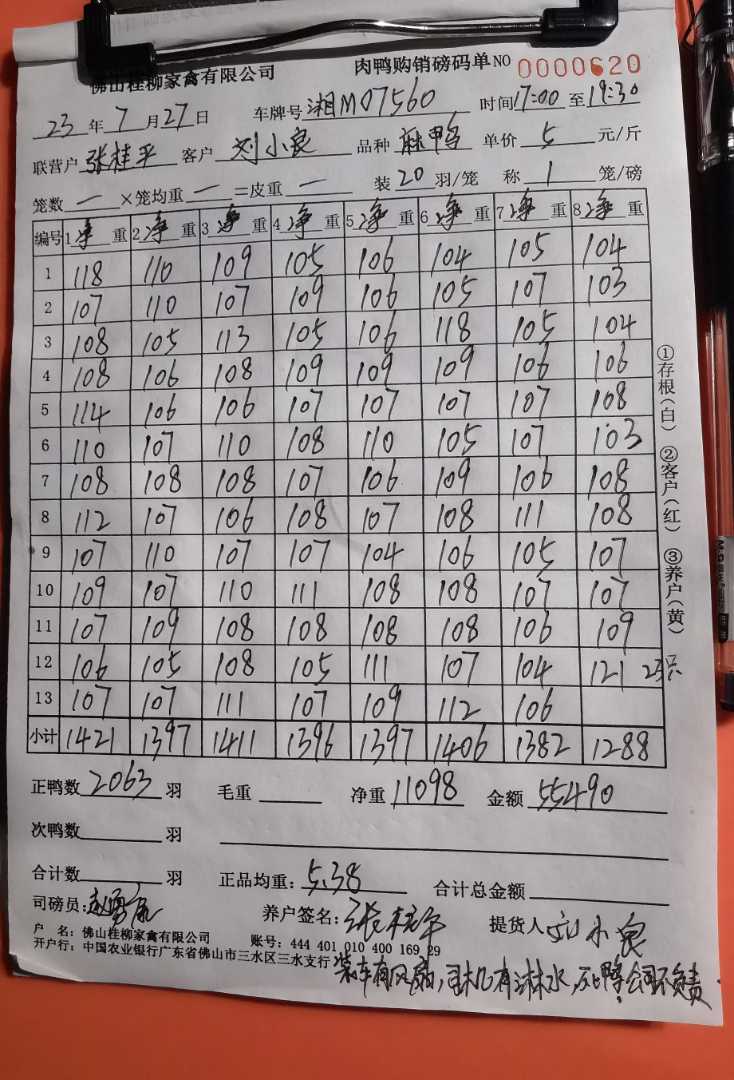 佛山桂柳家禽有限公司 肉鸭购销磅码单 NO 0000620
23 年 7 月 27 日 车牌号 湘M07560 时间 17:00 至 19:30
联营户 张桂平 客户 刘小良 品种 麻鸭 单价 5 元/斤
笼数 一 ×笼均重 一 =皮重 一 装 20 羽/笼 称 1 笼/磅
编号 1净重 2净重 3净重 4净重 5净重 6净重 7净重 8净重
1 118 110 109 105 106 104 105 104
2 107 110 107 109 106 105 107 103
3 108 105 113 105 106 118 105 104
4 108 106 108 109 109 109 106 106
5 114 106 106 107 107 107 107 108
6 110 107 110 108 110 105 107 103
7 108 108 108 107 106 109 106 108
8 112 107 106 108 107 108 111 108
9 107 110 107 107 104 106 105 107
10 109 107 110 111 108 108 107 107
11 107 109 108 108 108 108 106 109
12 106 105 108 105 111 107 104 121 23只
13 107 107 111 107 109 112 106
小计 1421 1397 1411 1396 1397 1406 1382 1288
①存根(白) ②客户(红) ③养户(黄)
正鸭数 2063 羽 毛重 净重 11098 金额 55490
次鸭数 羽
合计数 羽 正品均重: 5.38 合计总金额
司磅员: 养户签名: 张桂平 提货人 刘小良
户 名: 佛山桂柳家禽有限公司 账号: 444 401 010 400 169 29
开户行: 中国农业银行广东省佛山市三水区三水支行
装车有风扇,司机有淋水,死鸭公司不负责